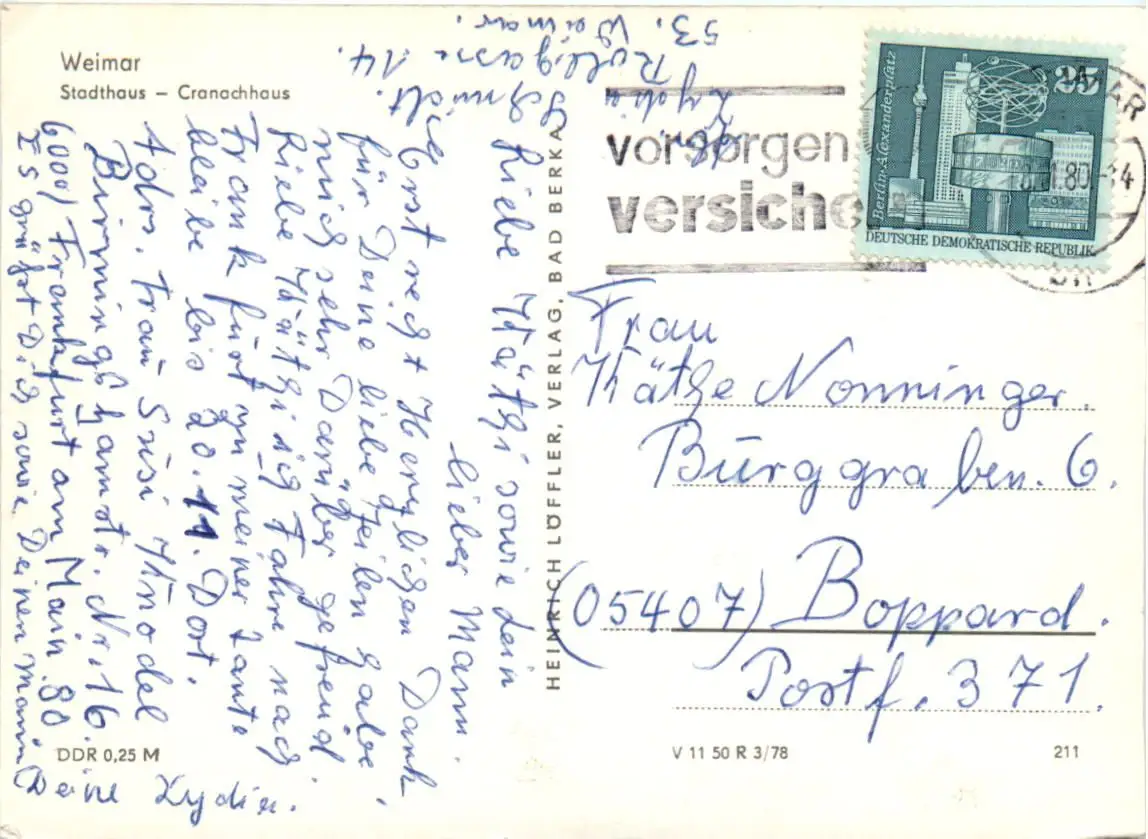 Weimar
Stadthaus – Cranachhaus
Lydia Schmidt.
Rollgasse 14.
53. Weimar.
Liebe Käthi sowie dein
lieber Mann.
Erst recht Herzlichen Dank
für Deine liebe Zeilen habe
mich sehr Darüber gefreud.
Liebe Käthi ich Fahre nach
Frankfürt zu meiner Tante
bleibe bis 20.11. Dort.
Adrs. Frau Susi Knodel
Birmingshamstr. Nr. 16.
6000/Frankfurt am Main 80
Es grüßt Dich sowie Deinen Mann
Deine Lydia.
HEINRICH LÖFFLER, VERLAG, BAD BERKA
vorsorgen
versiche
Berlin-Alexanderplatz
25
DEUTSCHE DEMOKRATISCHE REPUBLIK
Frau
Käthe Nonninger.
Burggraben. 6.
(05407) Boppard.
Postf. 371.
DDR 0,25 M
V 11 50 R 3/78
211